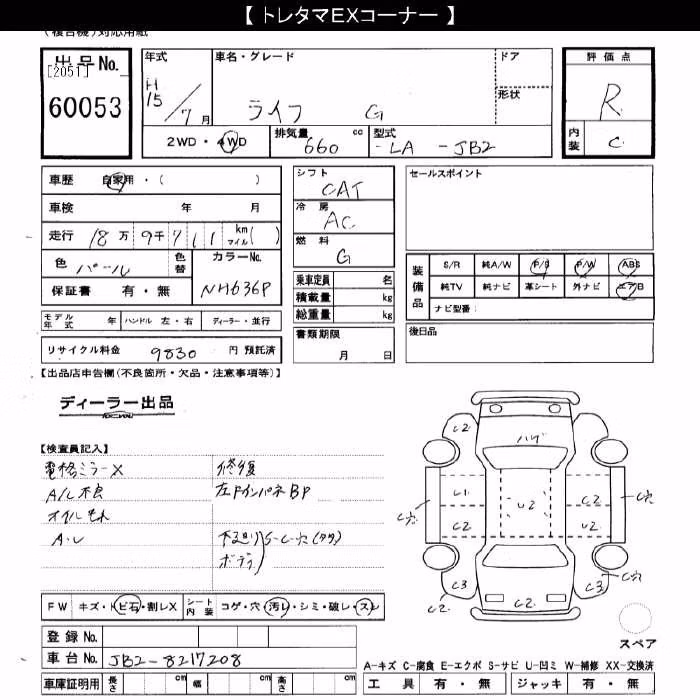 【 トレタマEXコーナー 】
(複合機)対応用紙
出品No.
[2051]
60053
年式
H
15/7月
車名・グレード
ライフ G
ドア
形状
2WD・4WD
排気量
660 cc
型式
-LA -JB2
評価点
R
内装
C
車歴 自家用・( )
車検 年 月
走行 18万9千711 km マイル( )
色 パール
色替
カラーNo.
NH636P
保証書 有・無
モデル年式 年
ハンドル 左・右
ディーラー・並行
リサイクル料金 9830 円 預託済
シフト
CAT
冷房
AC
燃料
G
乗車定員 名
積載量 kg
総重量 kg
書類期限
月 日
セールスポイント
装備品
S/R 純A/W P/S P/W ABS
純TV 純ナビ 革シート 外ナビ エアB
ナビ型番:
後日品
【出品店申告欄(不良箇所・欠品・注意事項等)】
ディーラー出品
【検査員記入】
電格ミラーX
A/L不良
オイルもれ
A・L
修復
左FインパネBP
下廻り
ボディ
S・C・穴(多数)
C2 C2
ハゲ
C1 C2 C穴
U2
C穴 C2 U2
C3 C3 C穴
C2 C2
FW キズ・トビ石・割レX
シート内装 コゲ・穴・汚レ・シミ・破レ・スレ
登録No.
車台No. JB2-8217208
車庫証明用 長さ cm 幅 cm 高さ cm
スペア
A-キズ C-腐食 E-エクボ S-サビ U-凹ミ W-補修 XX-交換済
工具 有・無 ジャッキ 有・無